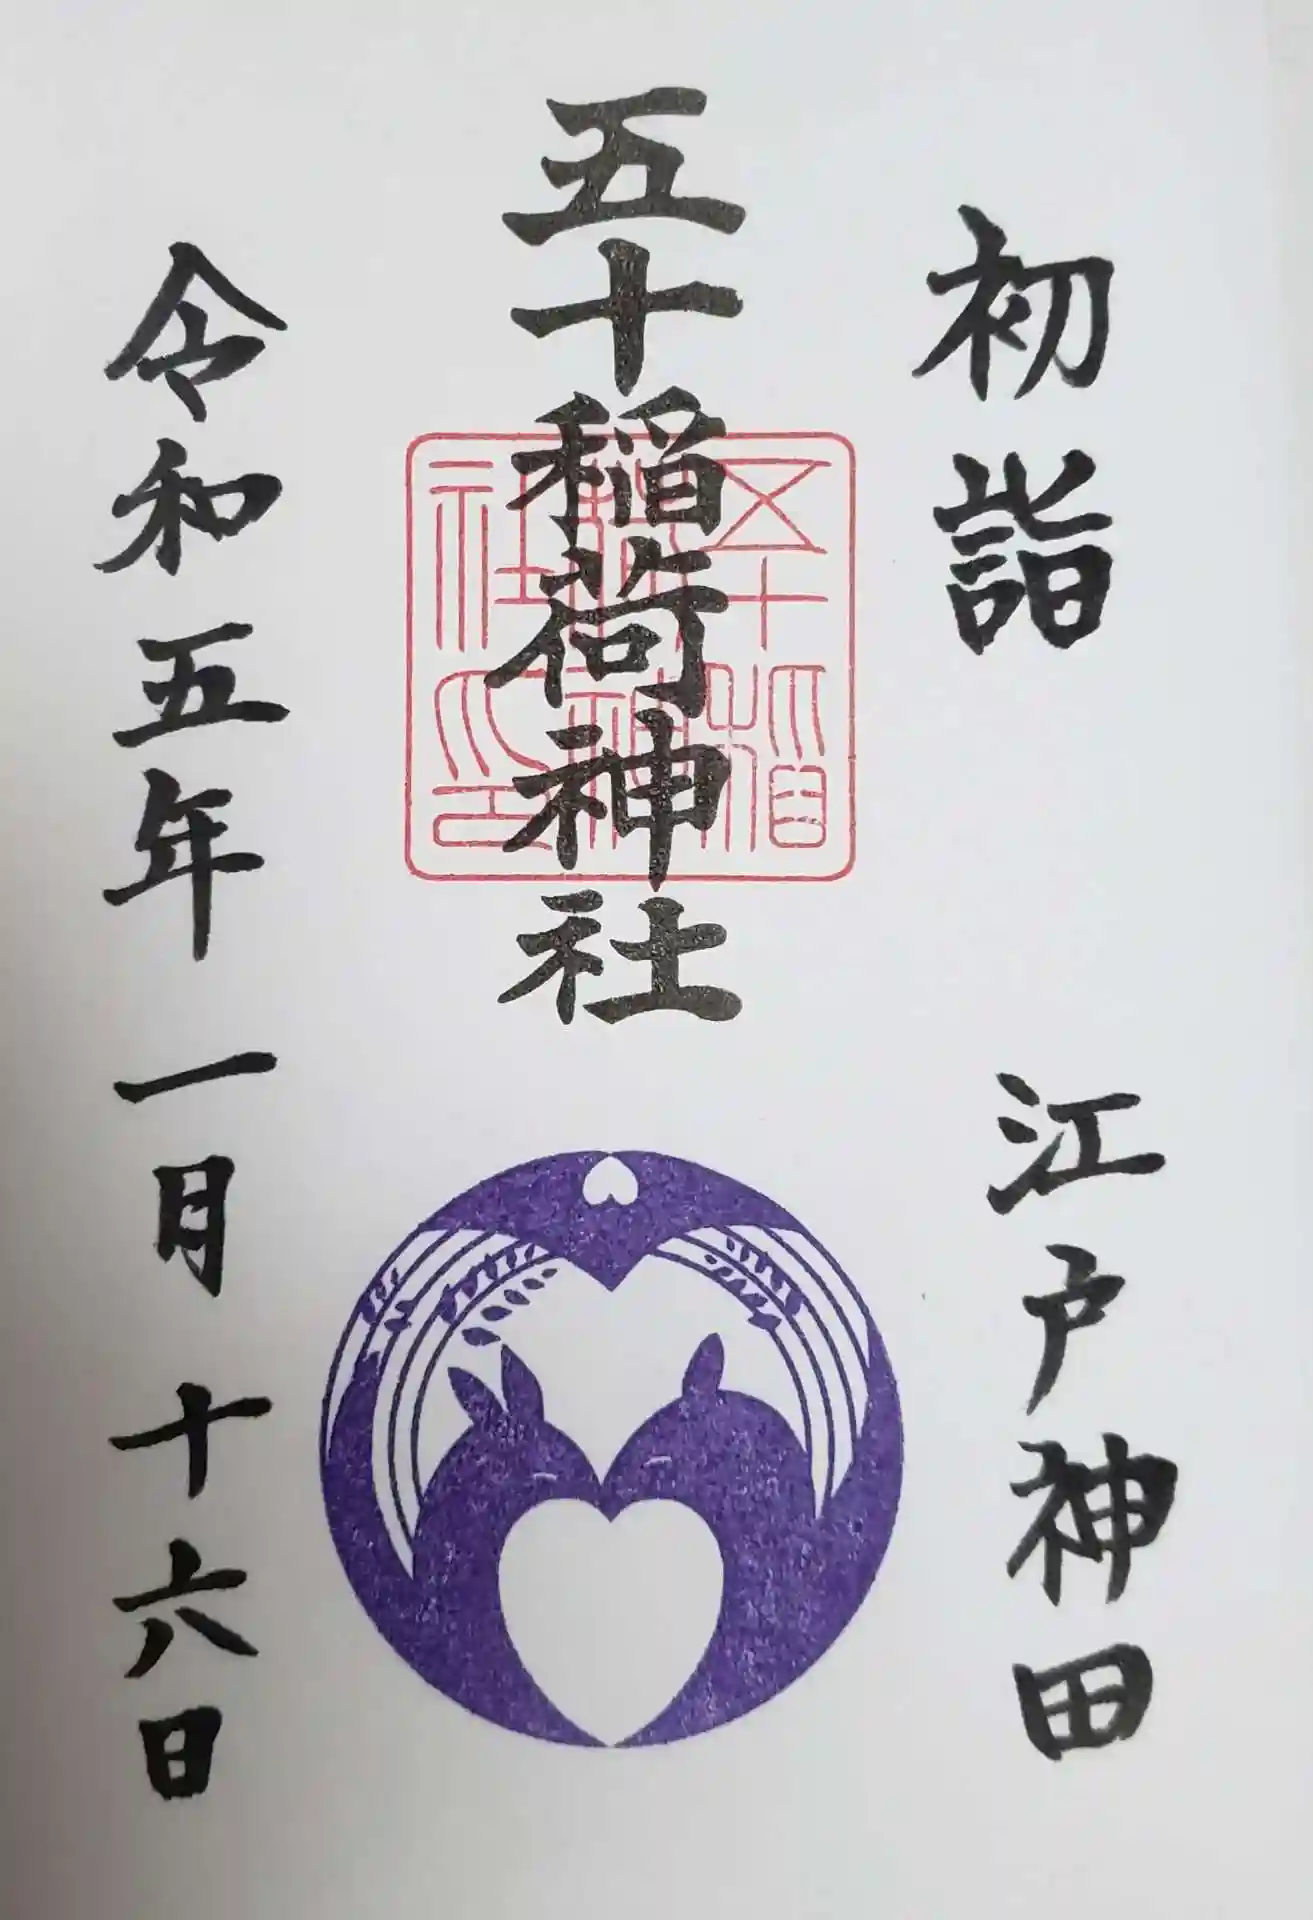 初詣
江戸神田
五十稲荷神社
五十稲荷神社印
令和五年一月十六日